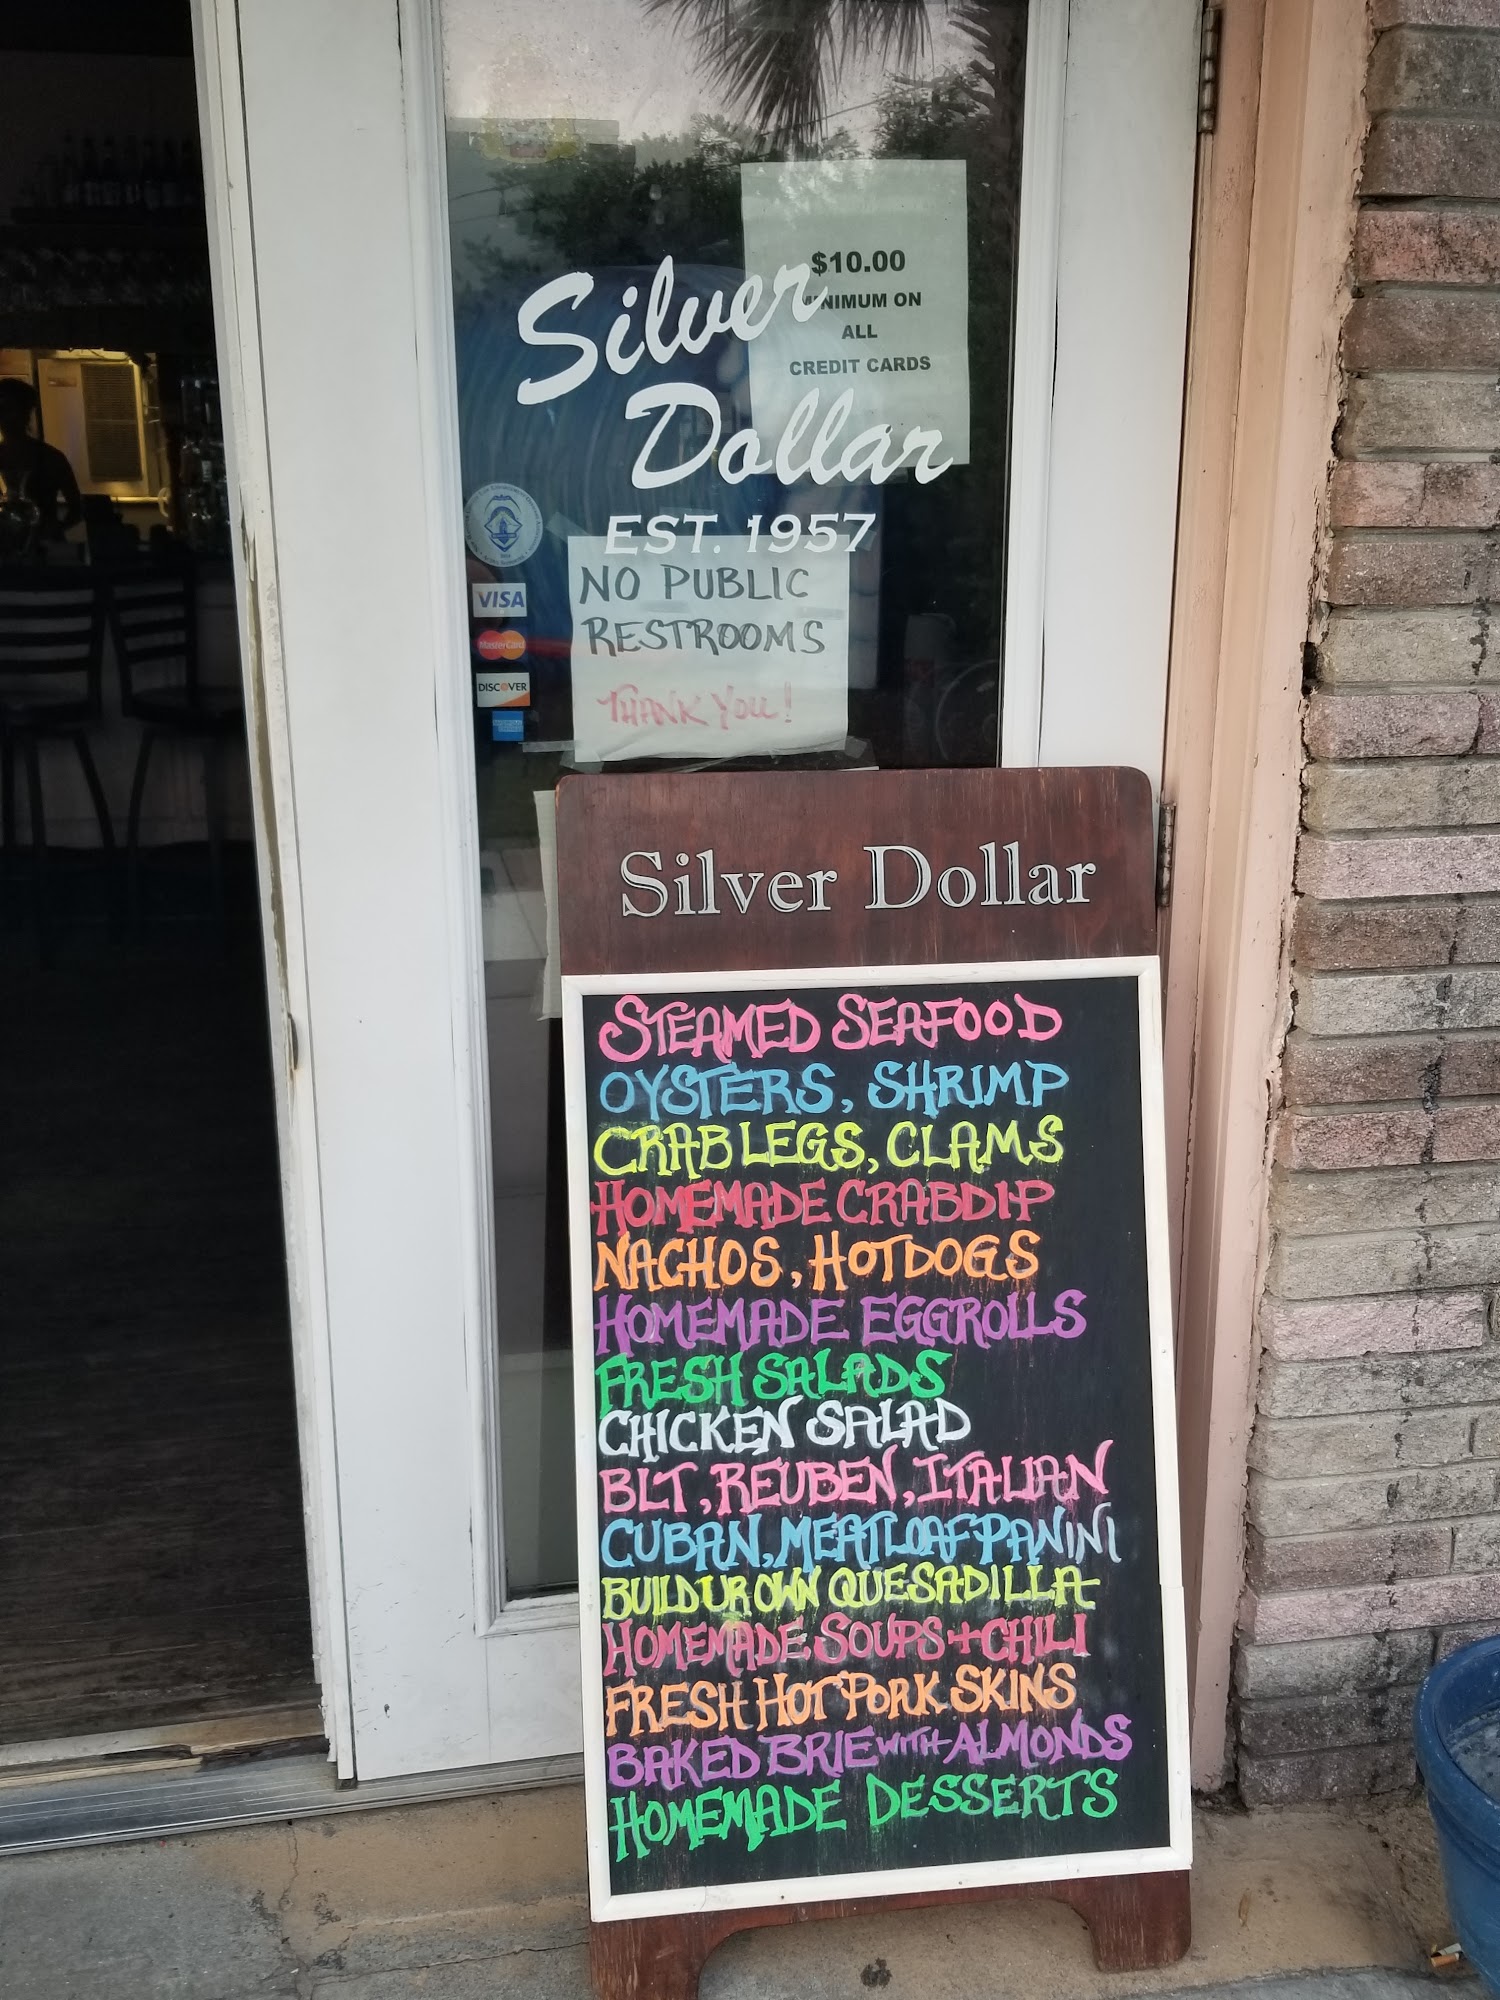 $10.00
MINIMUM ON
ALL
CREDIT CARDS
Silver
Dollar
EST. 1957
NO PUBLIC
RESTROOMS
THANK YOU!
VISA
MasterCard
DISCOVER
Silver Dollar
STEAMED SEAFOOD
OYSTERS, SHRIMP
CRAB LEGS, CLAMS
HOMEMADE CRABDIP
NACHOS, HOTDOGS
HOMEMADE EGGROLLS
FRESH SALADS
CHICKEN SALAD
BLT, REUBEN, ITALIAN
CUBAN, MEATLOAF PANINI
BUILD UR OWN QUESADILLA
HOMEMADE SOUPS + CHILI
FRESH HOT PORK SKINS
BAKED BRIE WITH ALMONDS
HOMEMADE DESSERTS